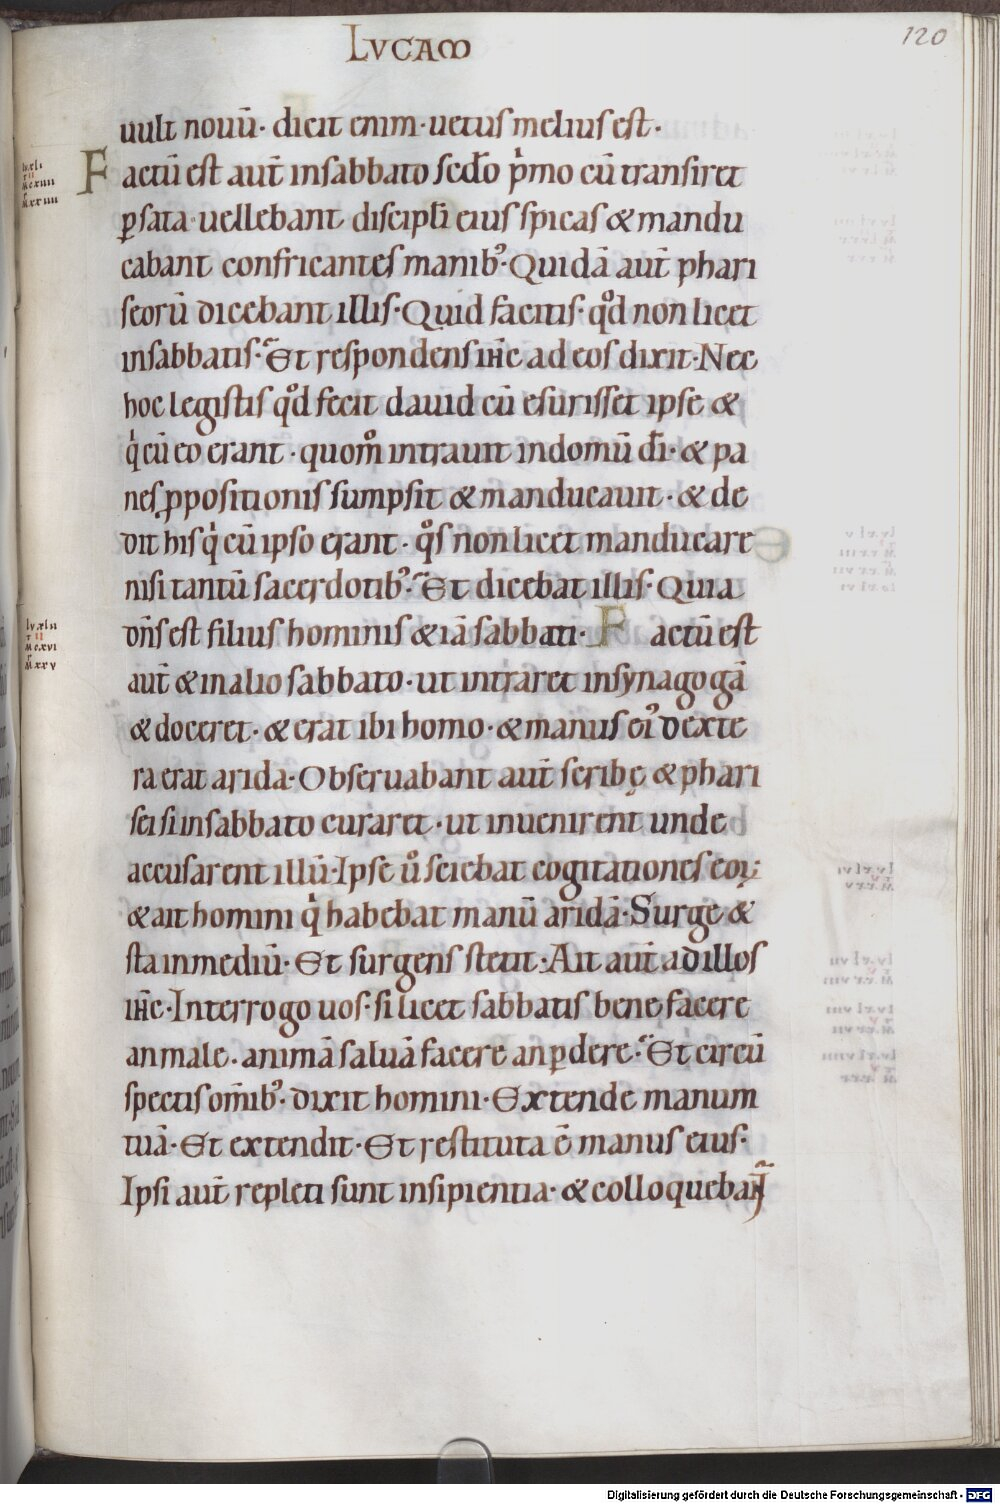 LVCAM
120
uult nouū· dicit enim· uetus melius est·
Factū est aut̄ insabbato scd̄o pͥmo cū transiret
ꝑsata· uellebant discipl̄i eius spicas & mandu
cabant confricantes manibꝰ· Quidā aut̄ phari
seorū dicebant illis· Quid facitis· qͦd non licet
insabbatis· Et respondens ih̄c ad eos dixit· Nec
hoc legistis qͦd fecit dauid cū esurisset ipse &
qͥ cū eo erant· quom̊ intrauit indomū dī· & pa
nes ꝓpositionis sumpsit & manducauit· & de
dit his qͥ cū ipso erant· qͦs non licet manducare
nisi tantū sacerdotibꝰ· Et dicebat illis· Quia
dn̄s est filius hominis & iā sabbati· Factū est
aut̄ & inalio sabbato· ut intraret insynagogā
& doceret· & erat ibi homo· & manus eiꝰ dexte
ra erat arida· Obseruabant aut̄ scribę & phari
sei si insabbato curaret· ut inuenirent unde
accusarent illū· Ipse uͦ sciebat cogitationes eoꝝ
& ait homini qͥ habebat manū aridā· Surge &
sta inmediū· Et surgens stetit· Ait aut̄ ad illos
ih̄c· Interrogo uos· si licet sabbatis bene facere
an male· animā saluā facere an ꝑdere· Et circū
spectis om̄ibꝰ· dixit homini· Extende manum
tuā· Et extendit· Et restituta ē manus eius·
Ipsi aut̄ repleti sunt insipientia· & colloquebant̃
lxxlii
M cxvi
M xxv
Digitalisierung gefördert durch die Deutsche Forschungsgemeinschaft - DFG